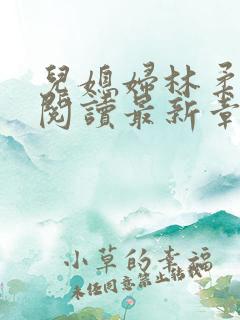 兒媳婦林柔
閱讀最新章
小草的幸福
未經同意禁止轉載